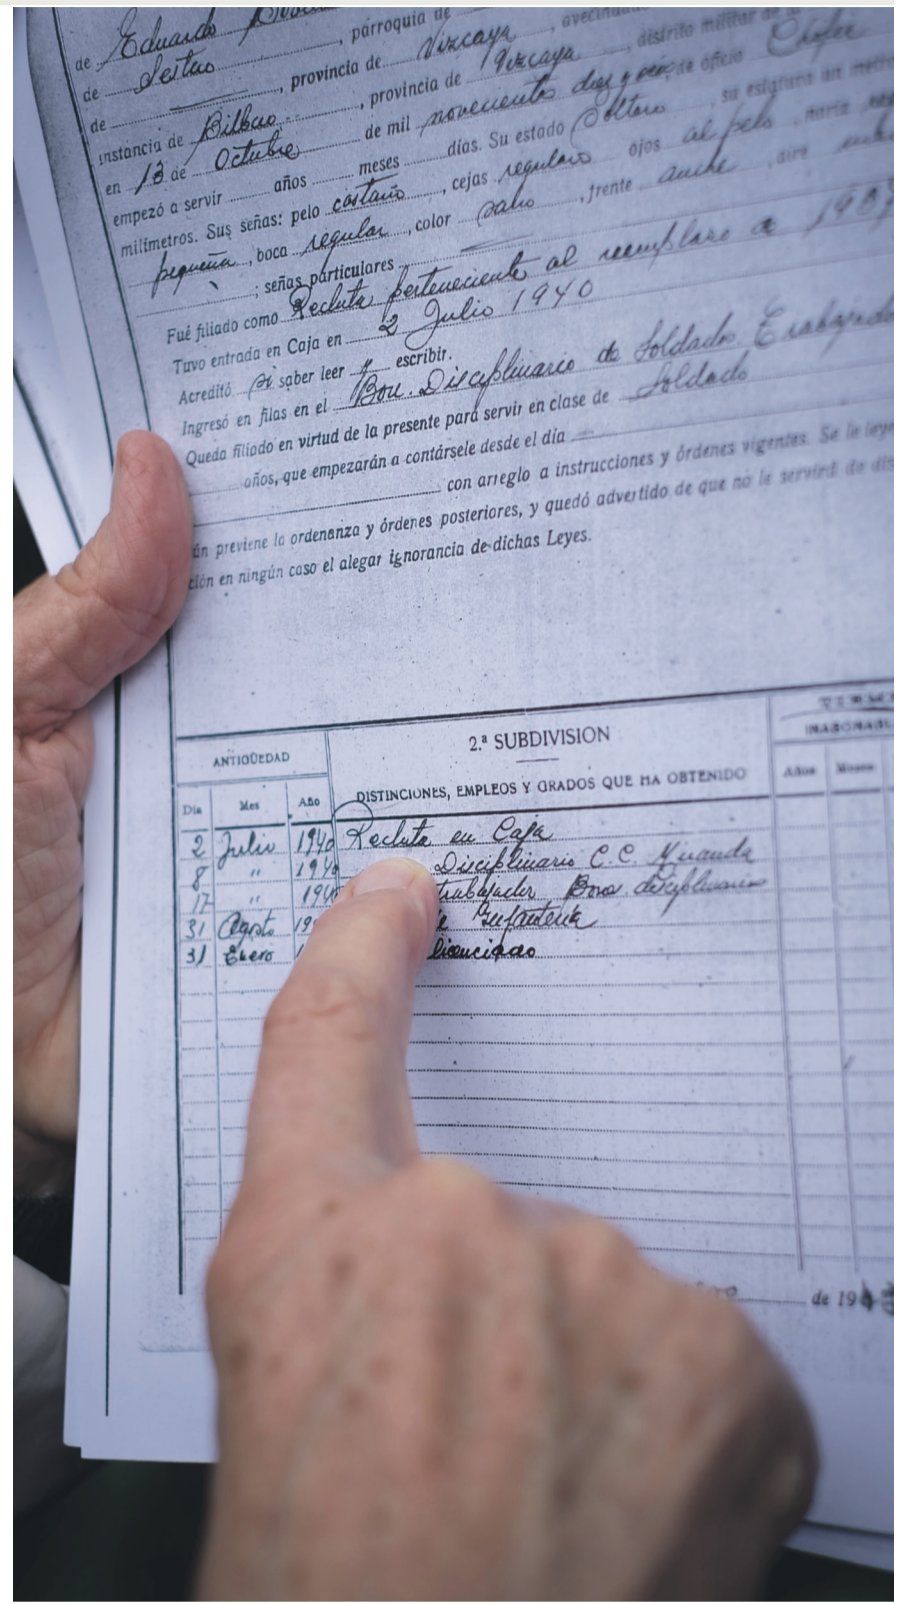 de Eduardo
de Sestao, parroquia de
de, provincia de Vizcaya, avecindado
instancia de Bilbao, provincia de Vizcaya, distrito militar de
en 13 de Octubre de mil novecientos diez y seis, de oficio Chofer
empezó a servir años meses días. Su estado Soltero, su estatura un metro
milímetros. Sus señas: pelo castaño, cejas regulares ojos al pelo, nariz
pequeña, boca regular, color sano, frente ancha, aire
; señas particulares
Fué filiado como Recluta perteneciente al reemplazo de 1937
Tuvo entrada en Caja en 2 Julio 1940
Acreditó si saber leer y escribir.
Ingresó en filas en el Bon. Disciplinario de Soldados Trabajado
Queda filiado en virtud de la presente para servir en clase de Soldado
años, que empezarán a contársele desde el día
con arreglo a instrucciones y órdenes vigentes. Se le leye
ún previene la ordenanza y órdenes posteriores, y quedó advertido de que no le servirá de dis
ción en ningún caso el alegar ignorancia de dichas Leyes.
ANTIGÜEDAD
2.ª SUBDIVISION
INABONABL
Día Mes Año
DISTINCIONES, EMPLEOS Y GRADOS QUE HA OBTENIDO
Años Meses
2 Julio 1940 Recluta en Caja
8 " 1940 Disciplinario C.C. Miranda
17 " 1940 trabajador Bon. disciplinario
31 Agosto 19 Infantería
31 Enero licenciado
de 194